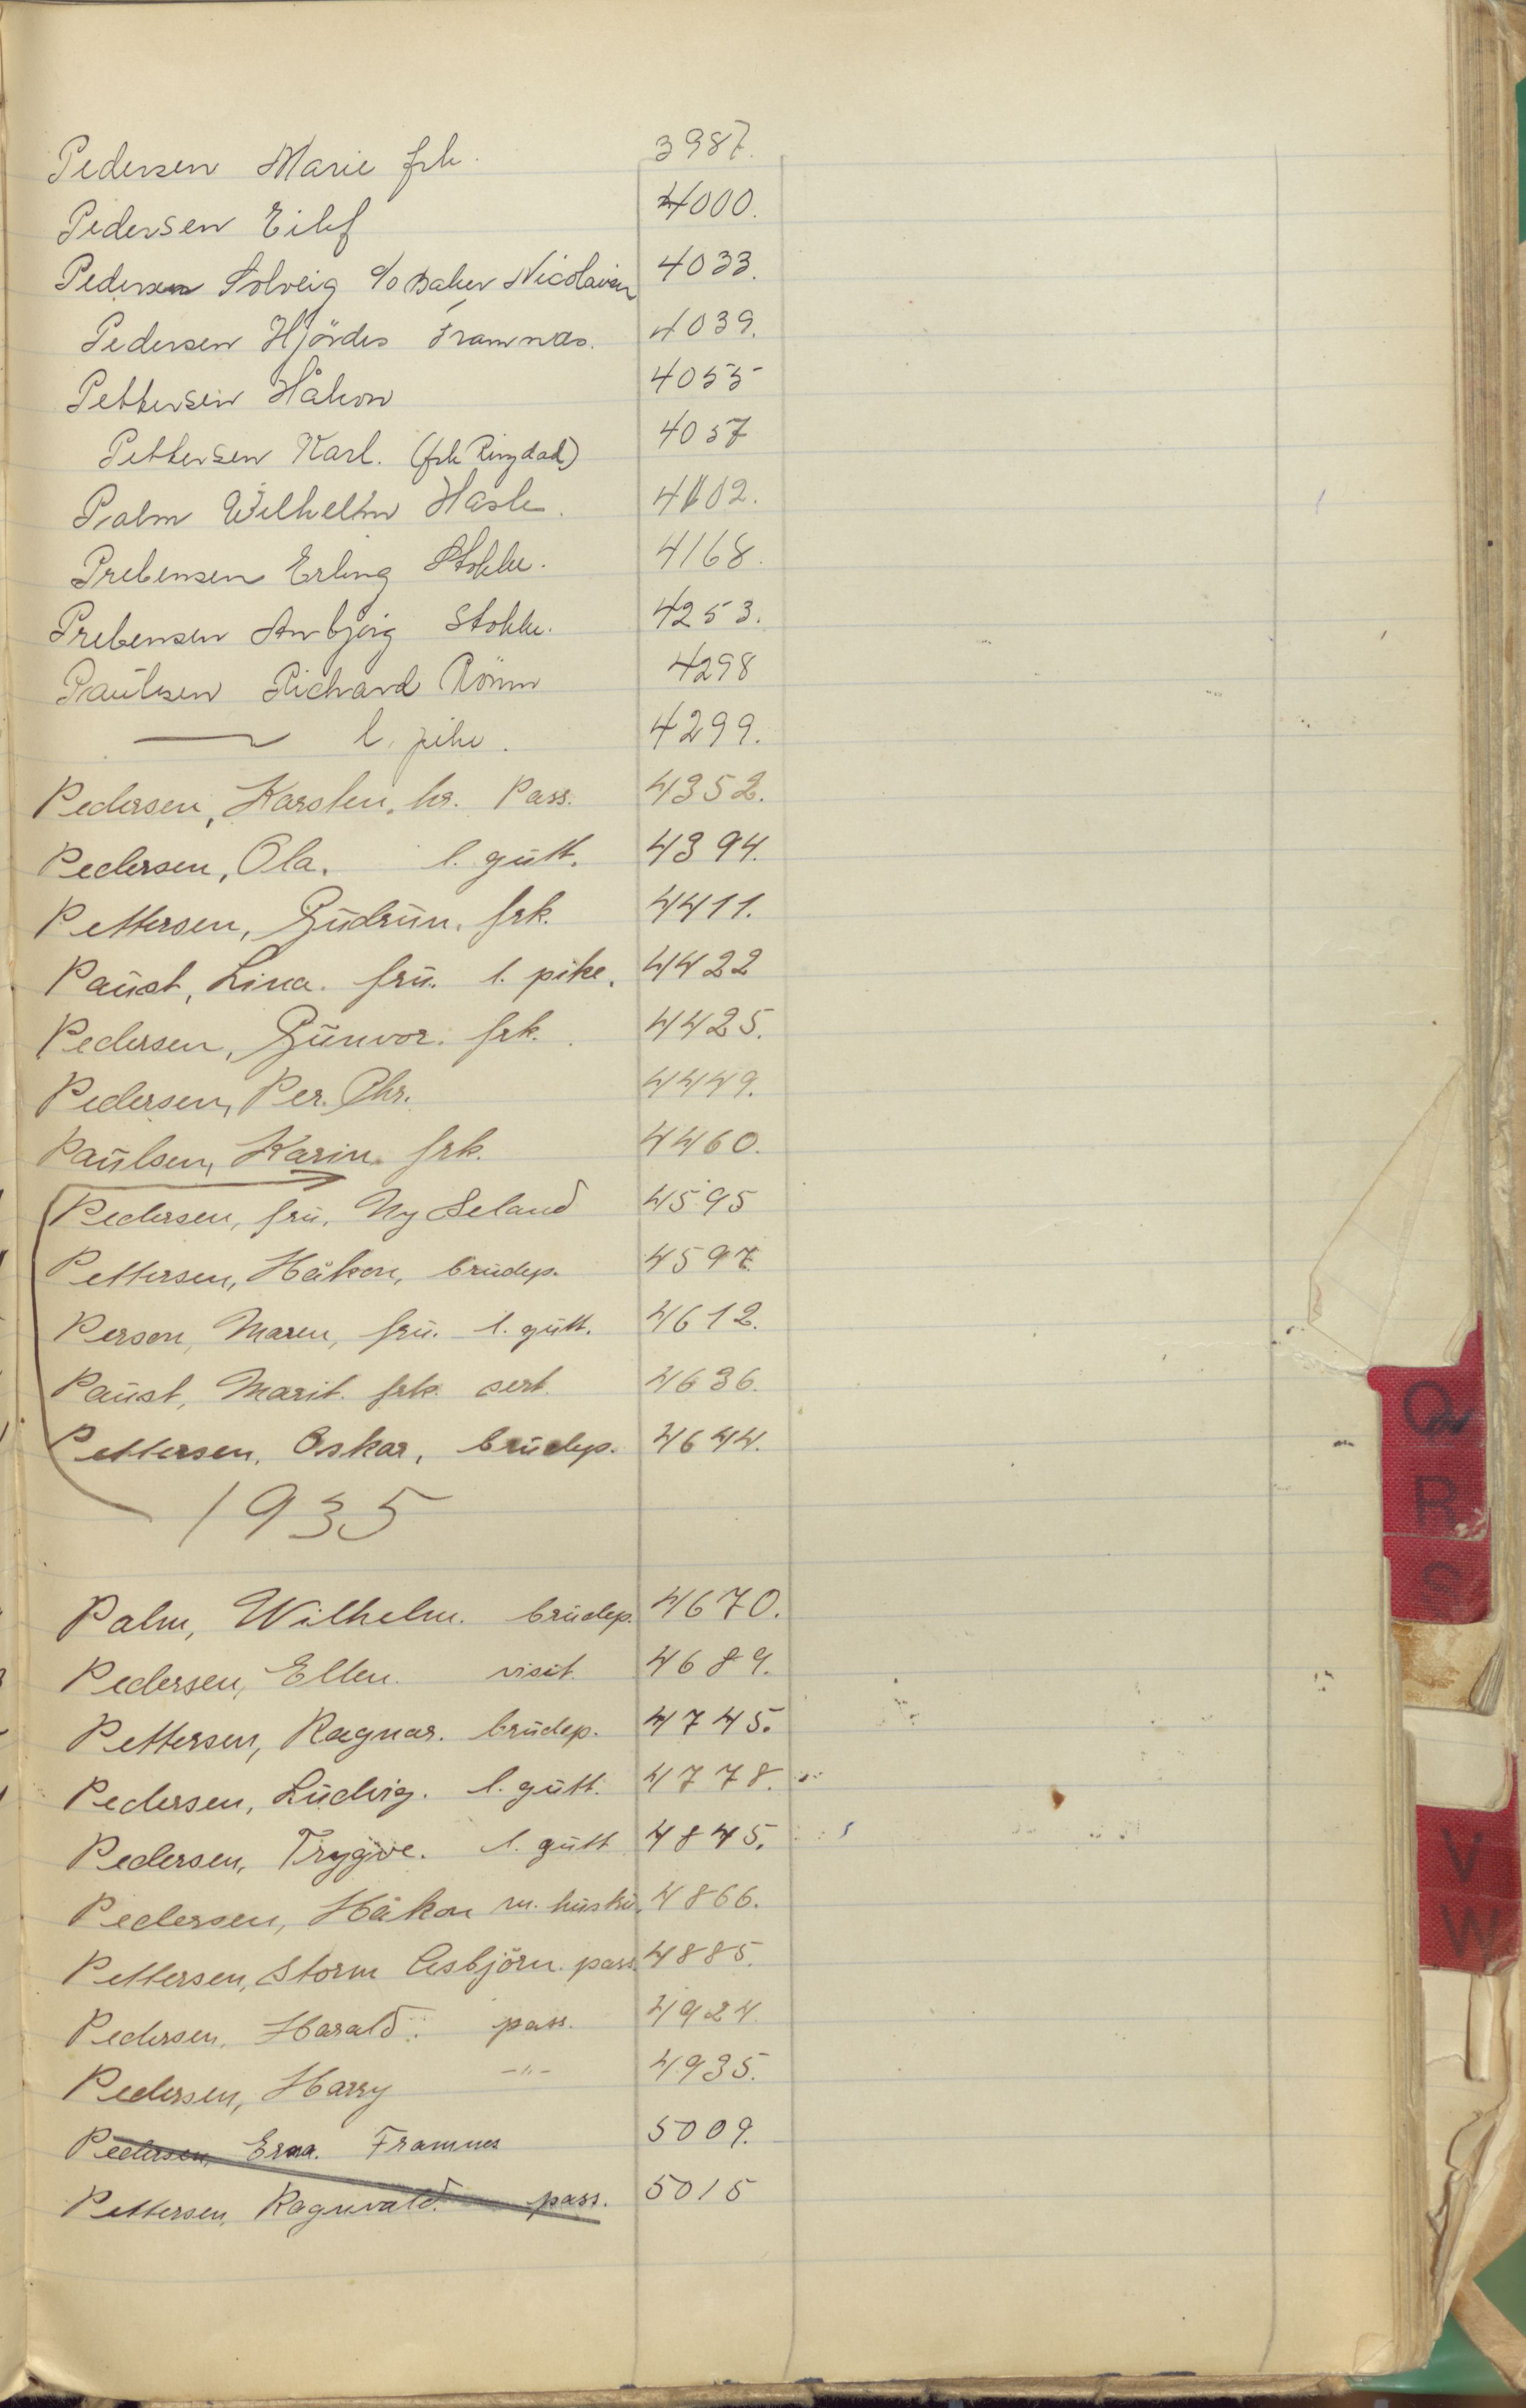 Pedersen Marie frk. 3987.
Pedersen Eilif 4000.
Pedersen Solveig c/o Baker Nicolaisen 4033.
Pedersen Hjördis Framnæs. 4039.
Pettersen Håkon 4055
Pettersen Karl. (frk Ringdal) 4057
Palm Wilhelm Hasle. 4102.
Prebensen Erling Stokke. 4168.
Prebensen Anbjörg Stokke. 4253.
Paulsen Richard Römm 4298
— l. pike. 4299.
Pedersen, Karsten, hr. Pass. 4352.
Pedersen, Ola. l. gutt. 4394.
Pettersen, Gudrun. frk. 4411.
Paust, Lina. fru. l. pike. 4422
Pedersen, Gunvor. frk. 4425.
Pedersen, Per. Chr. 4449.
Paulsen, Karin. frk. 4460.
Pedersen, fru, Ny Seland 4595
Pettersen, Håkon, brudep. 4597.
Person, Maren, fru. l. gutt. 4612.
Paust, Marit. frk. sert. 4636.
Pettersen, Oskar, brudep. 4644.
1935
Palm, Wilhelm. brudep. 4670.
Pedersen, Ellen. visit. 4689.
Pettersen, Ragnar. brudep. 4745.
Pedersen, Ludvig. l. gutt. 4778.
Pedersen, Trygve. l. gutt 4845.
Pedersen, Håkon m. hustru. 4866.
Pettersen, Storm Asbjörn. pass. 4885.
Pedersen, Harald. pass. 4924.
Pedersen, Harry -"- 4935.
Pedersen, Erna. Framnes 5009.
Pettersen, Ragnvald. pass. 5015
Q
R
S
V
W